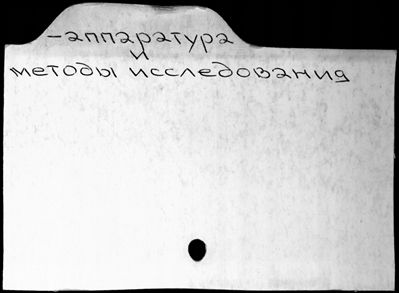 -аппаратура
и
методы исследования